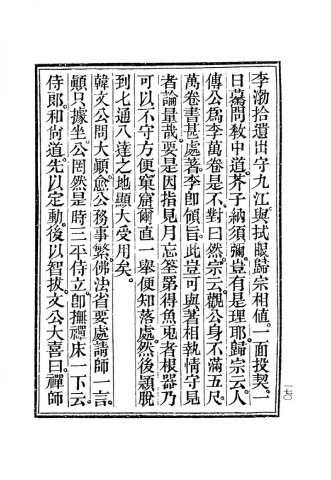 李渤拾遺出守九江與拭眼歸宗相値一面投契一
日驀問敎中道芥子納須彌豈有是理耶歸宗云人
傳公爲李萬卷是不對曰然宗云觀公身不滿五尺
萬卷書甚處著李卽領旨此豈可與著相執情守見
者論量哉要是因指見月忘筌第得魚兎者根器乃
可以不守方便窠窟爾直一舉便知落處然後穎脫
到七通八達之地顯大受用矣
韓文公問大顚愈公務事繁佛法省要處請師一言
顚只據坐公罔然是時三平侍立卽撫禪床一下云
侍郞和尙道先以定動後以智拔文公大喜曰禪師
一七〇